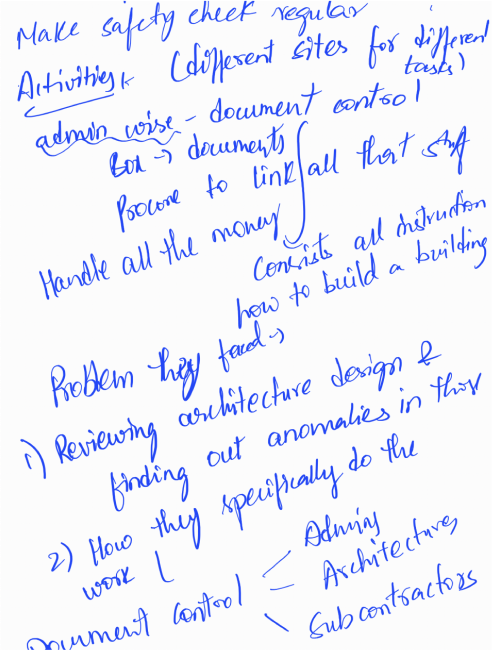 Make safety check regular
Activities (different sites for different tasks)
admin wise - document control
Box → documents
Procore to link all that stuff
Handle all the money
Consists all instruction
how to build a building
Problem they faced →
1) Reviewing architecture design &
finding out anomalies in that
2) How they specifically do the
work
Document control
Admins
Architectures
Subcontractors